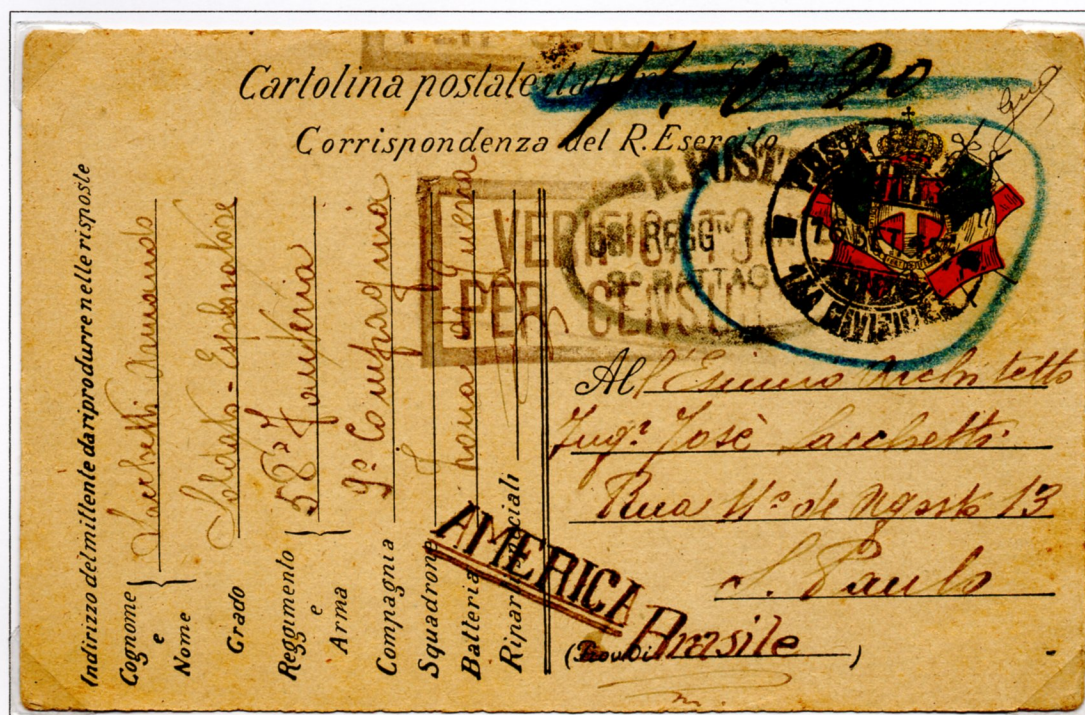 Cartolina postale
Corrispondenza del R. Esercito
R. POSTA
VERIFICATO
PER CENSURA
58° REGG
BATTAG
Indirizzo del mittente da riprodurre nelle risposte
Cognome e Nome
Sacchetti Armando
Grado
Soldato-
Reggimento e Arma
58° Fanteria
Compagnia
9ª Compagnia
Squadrone
Batteria
Zona di Guerra
Riparti
Speciali
All'Esimio Architetto
Ing.r Josè Sacchetti
Rua 11 de Agosto 13
S. Paulo
AMERICA
Brasile